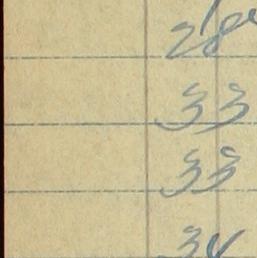 28
33
33
34